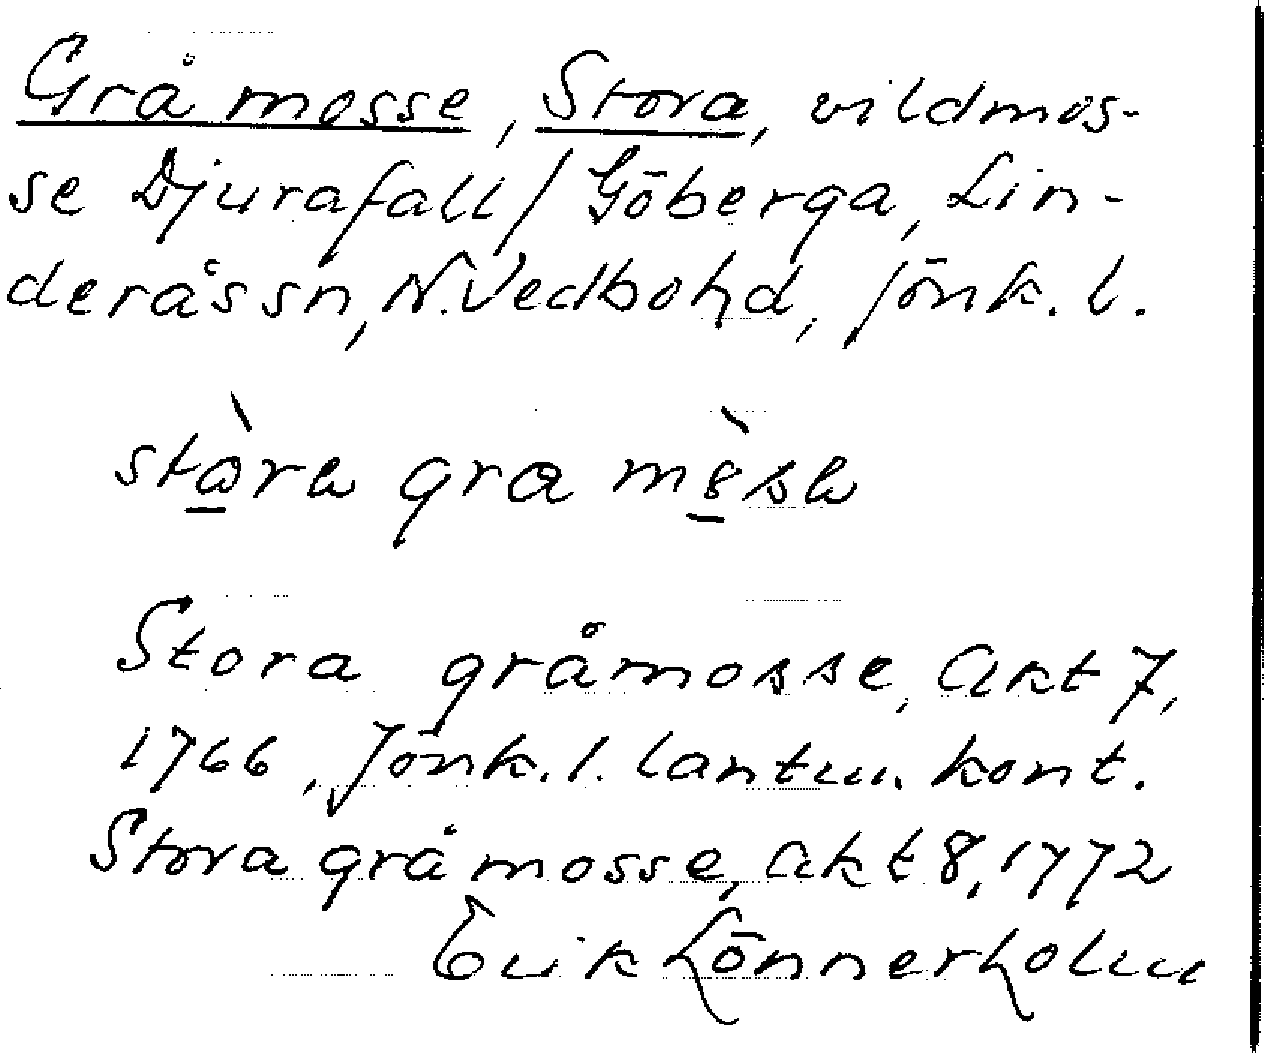 Grå mosse, Stora, vildmos-
se Djurafall/Göberga, Lin-
deråssn, N. Vedbohd, Jönk. l.
Stora gråmosse, Akt 7,
1766, Jönk. l. lantm. kont.
Stora grå mosse, Akt 8, 1772
Erik Lönnerholm